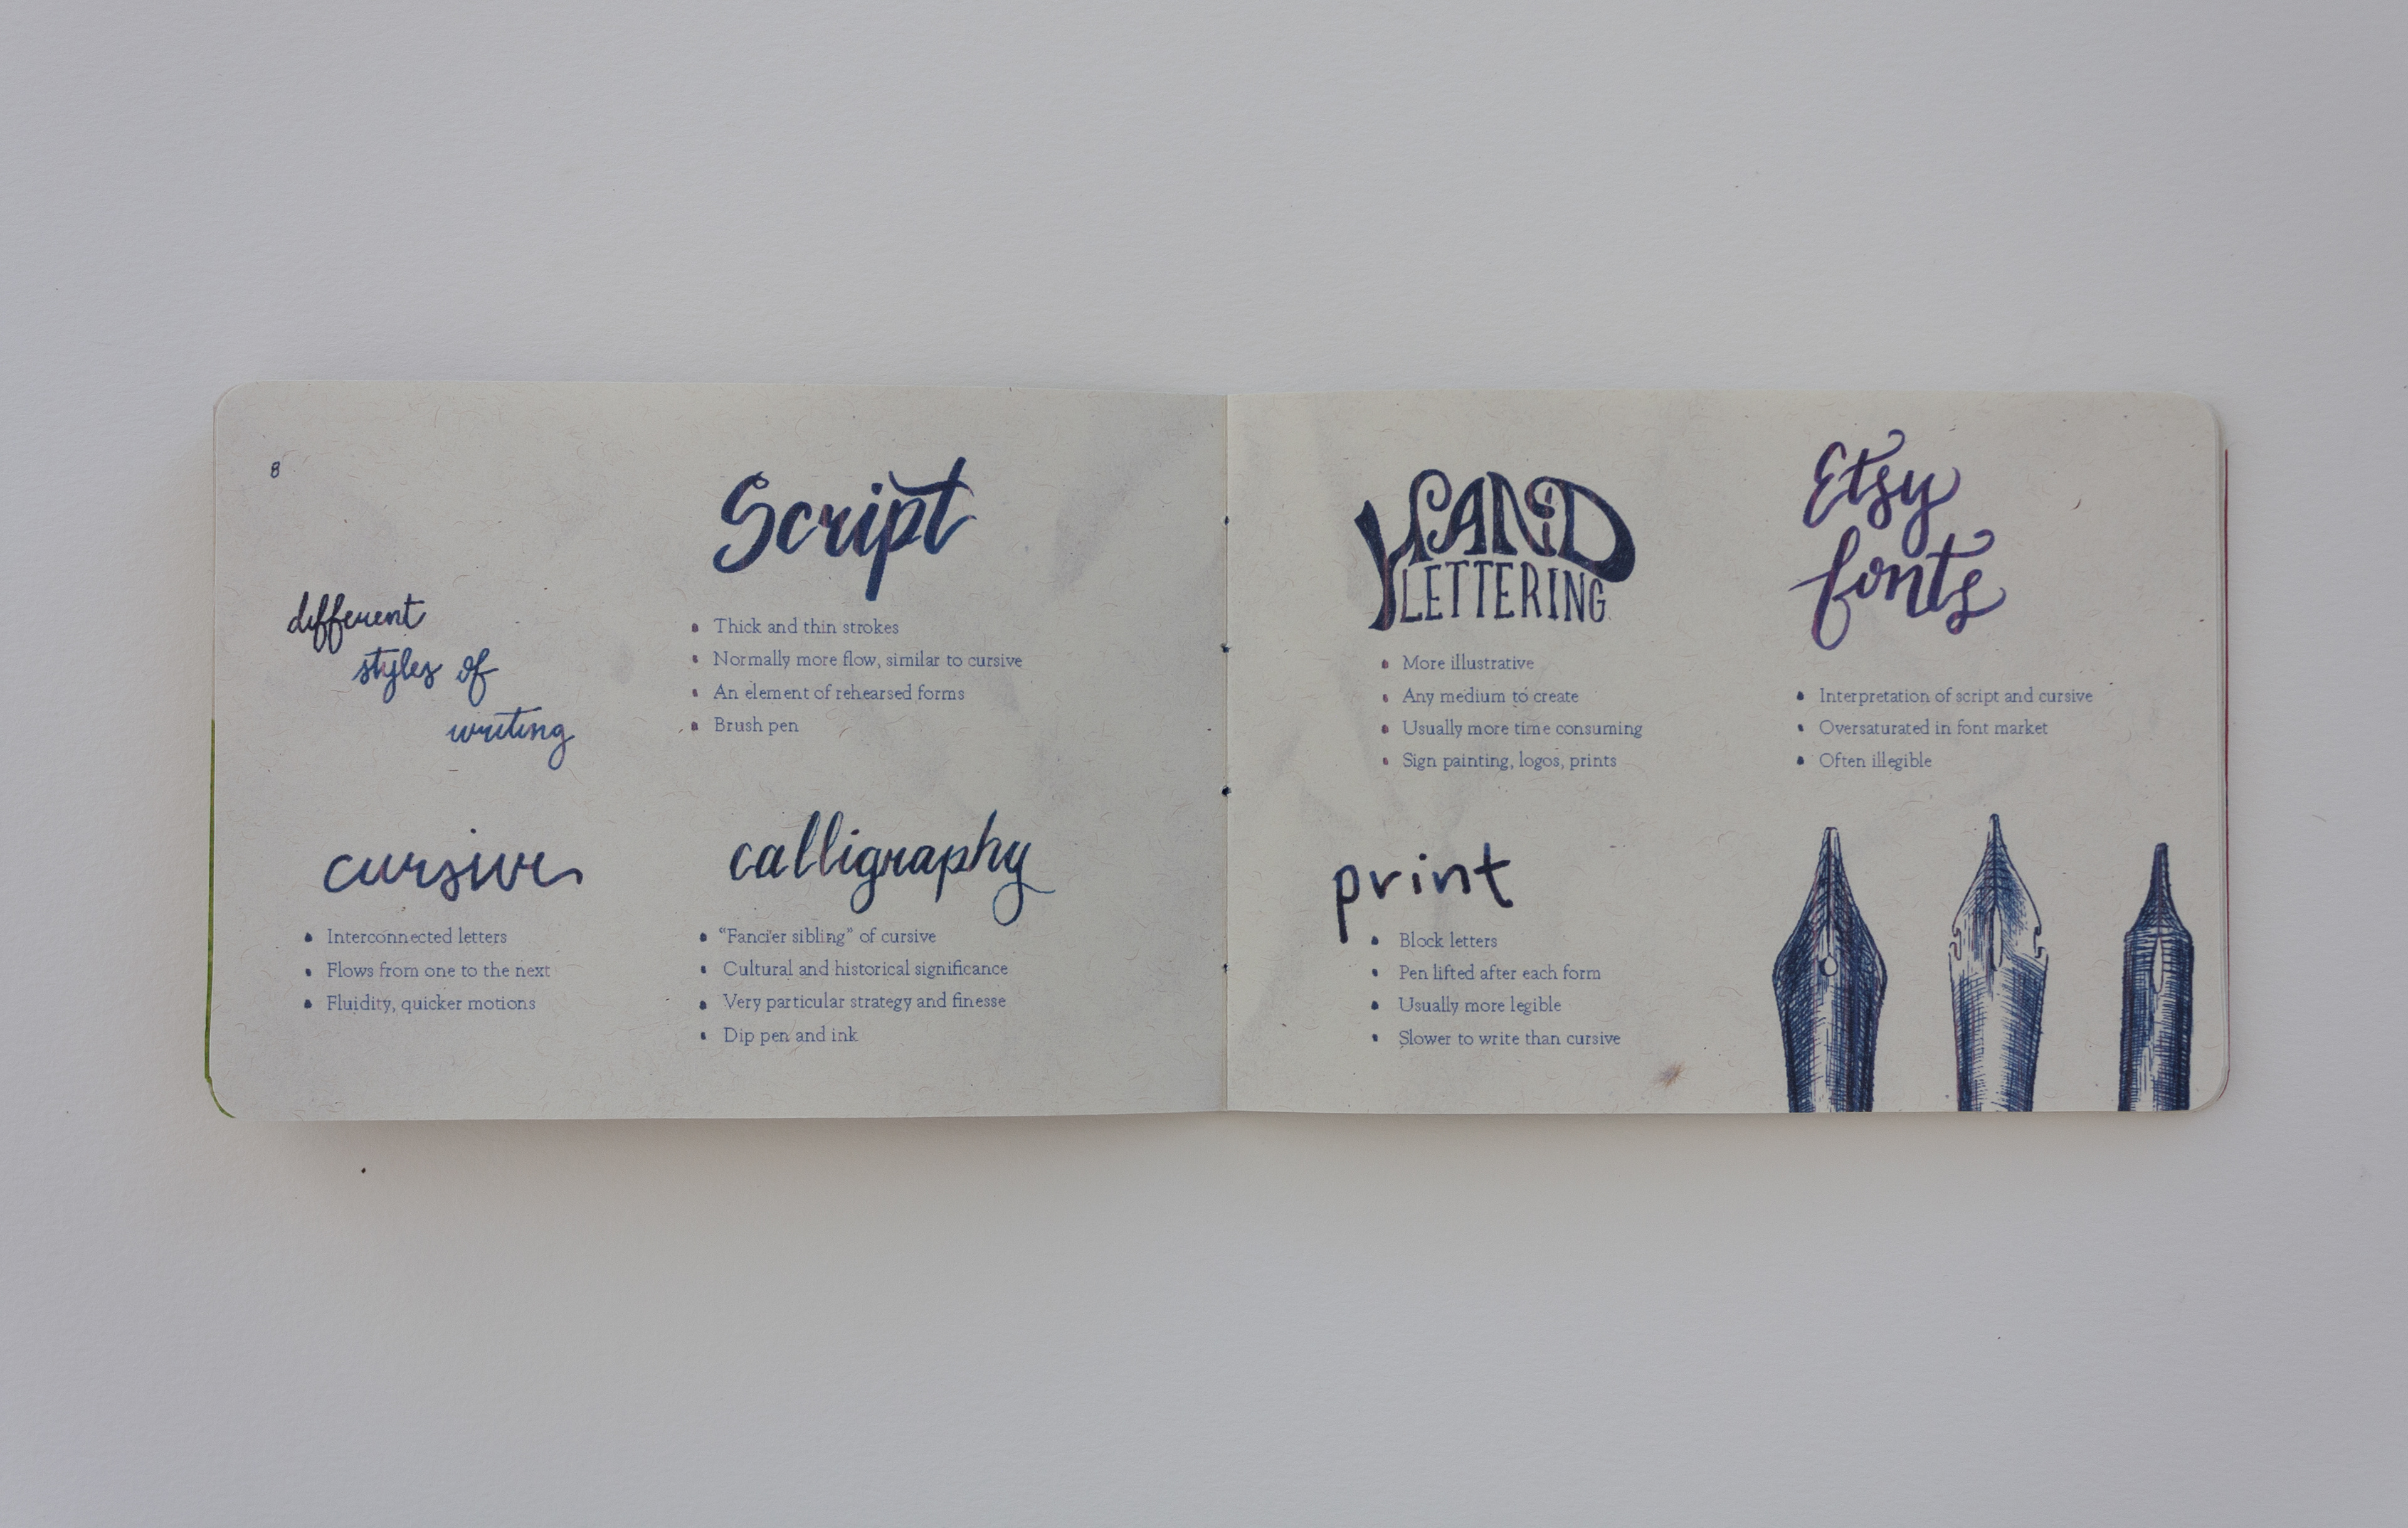 8
different
styles of
writing
Script
Thick and thin strokes
Normally more flow, similar to cursive
An element of rehearsed forms
Brush pen
cursive
Interconnected letters
Flows from one to the next
Fluidity, quicker motions
calligraphy
“Fancier sibling” of cursive
Cultural and historical significance
Very particular strategy and finesse
Dip pen and ink
HAND
LETTERING
More illustrative
Any medium to create
Usually more time consuming
Sign painting, logos, prints
Etsy
fonts
Interpretation of script and cursive
Oversaturated in font market
Often illegible
print
Block letters
Pen lifted after each form
Usually more legible
Slower to write than cursive